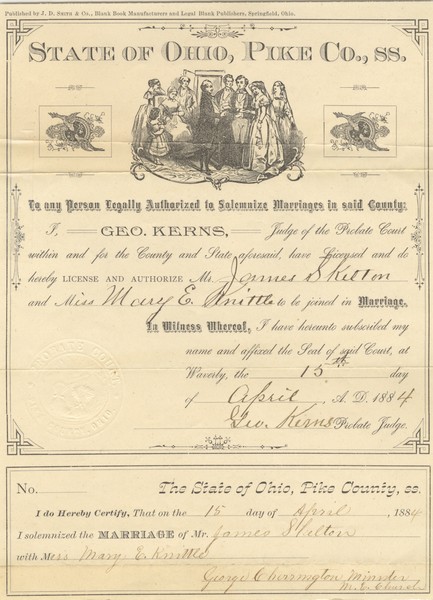 Published by J. D. & Co., Blank Book Manufacturers and Legal Blank Publishers, Springfield, Ohio.
STATE OF OHIO, PIKE CO., SS.
To any Person Legally Authorized to Solemnize Marriages in said County:
I, GEO. KERNS, Judge of the Probate Court
within and for the County and State aforesaid, have Licensed and do
hereby LICENSE AND AUTHORIZE Mr. James Skelton
and Miss Mary E. Knittle to be joined in Marriage.
In Witness Whereof, I have hereunto subscribed my
name and affixed the Seal of said Court, at
Waverly, the 15th day
of April A. D. 1884
Geo. Kerns Probate Judge.
No. The State of Ohio, Pike County, ss.
I do Hereby Certify, That on the 15 day of April, 1884
I solemnized the MARRIAGE of Mr. James Skelton
with Miss Mary E. Knittle
George Cherrington Minister
M. E. Church